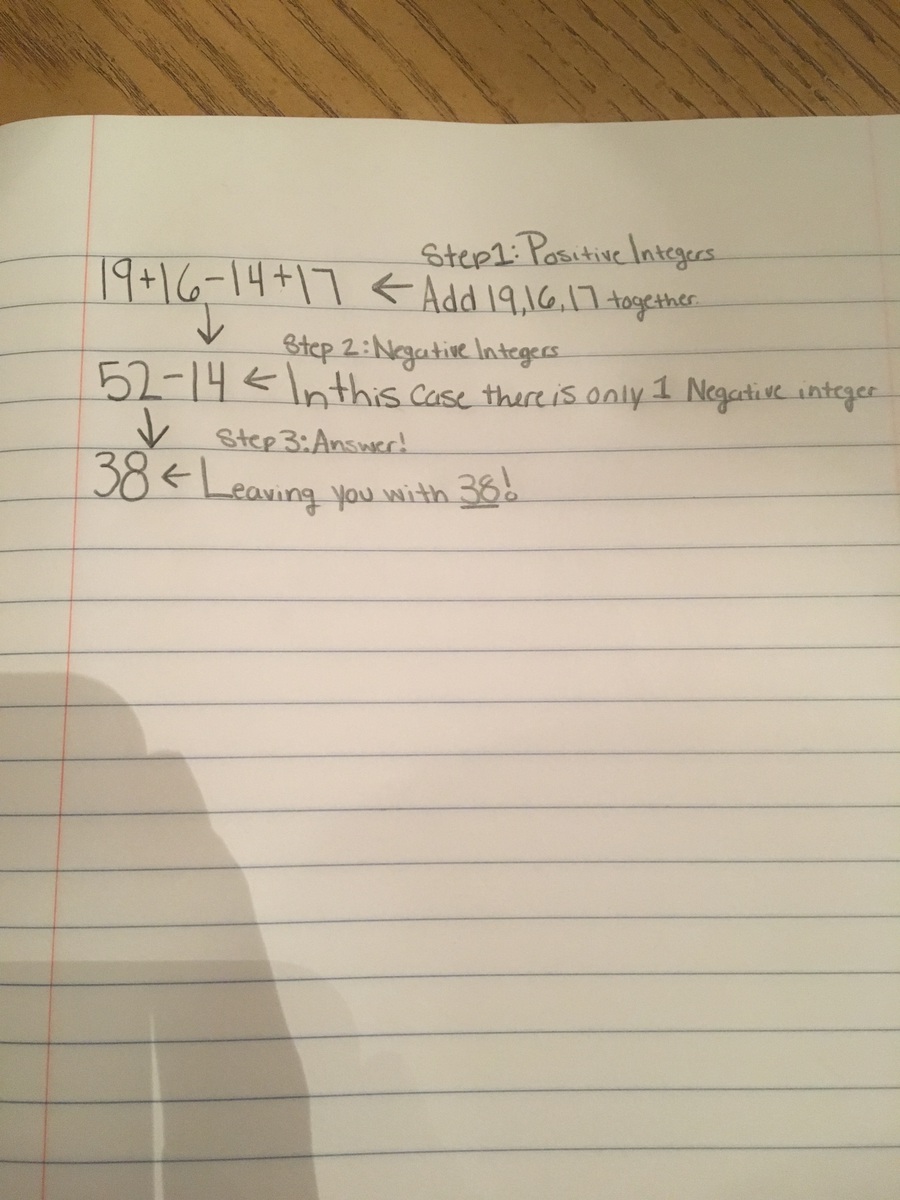 Step1: Positive Integers
19+16-14+17 ← Add 19,16,17 together.
↓
Step 2: Negative Integers
52-14 ← In this case there is only 1 Negative integer
↓
Step 3: Answer!
38 ← Leaving you with 38!